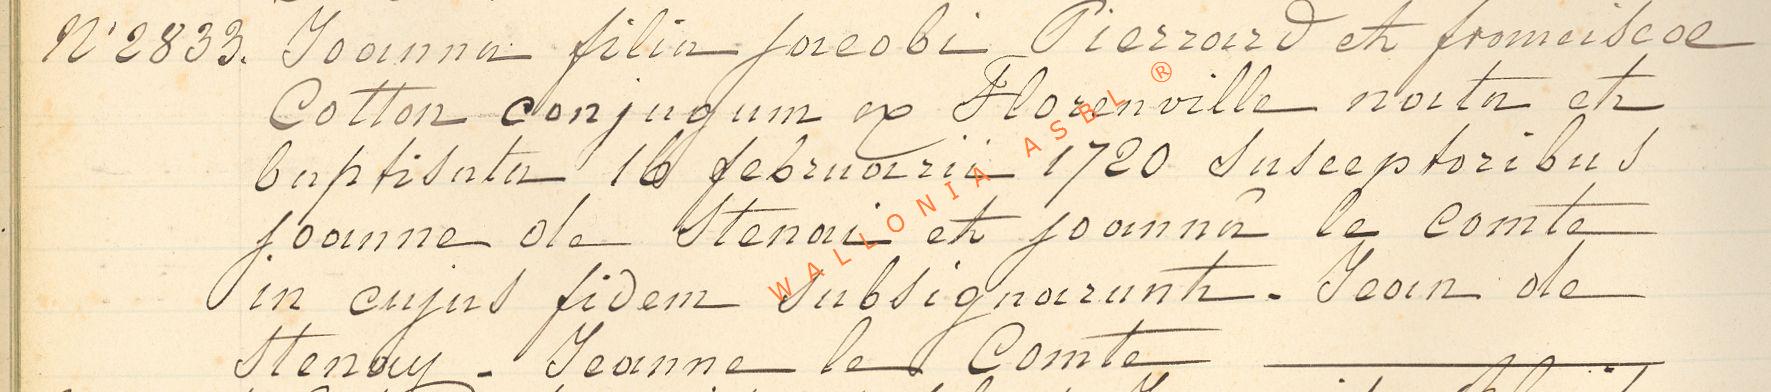 N° 2833. Joanna filia jacobi Pierrard et franciscae
Cotton conjugum ex Florenville nata et
baptisata 16 februarii 1720 susceptoribus
joanne de Stenai et joannâ le comte
in cujus fidem subsignarunt. Jean de
Stenay - Jeanne le Comte
WALLONIA ASBL ®